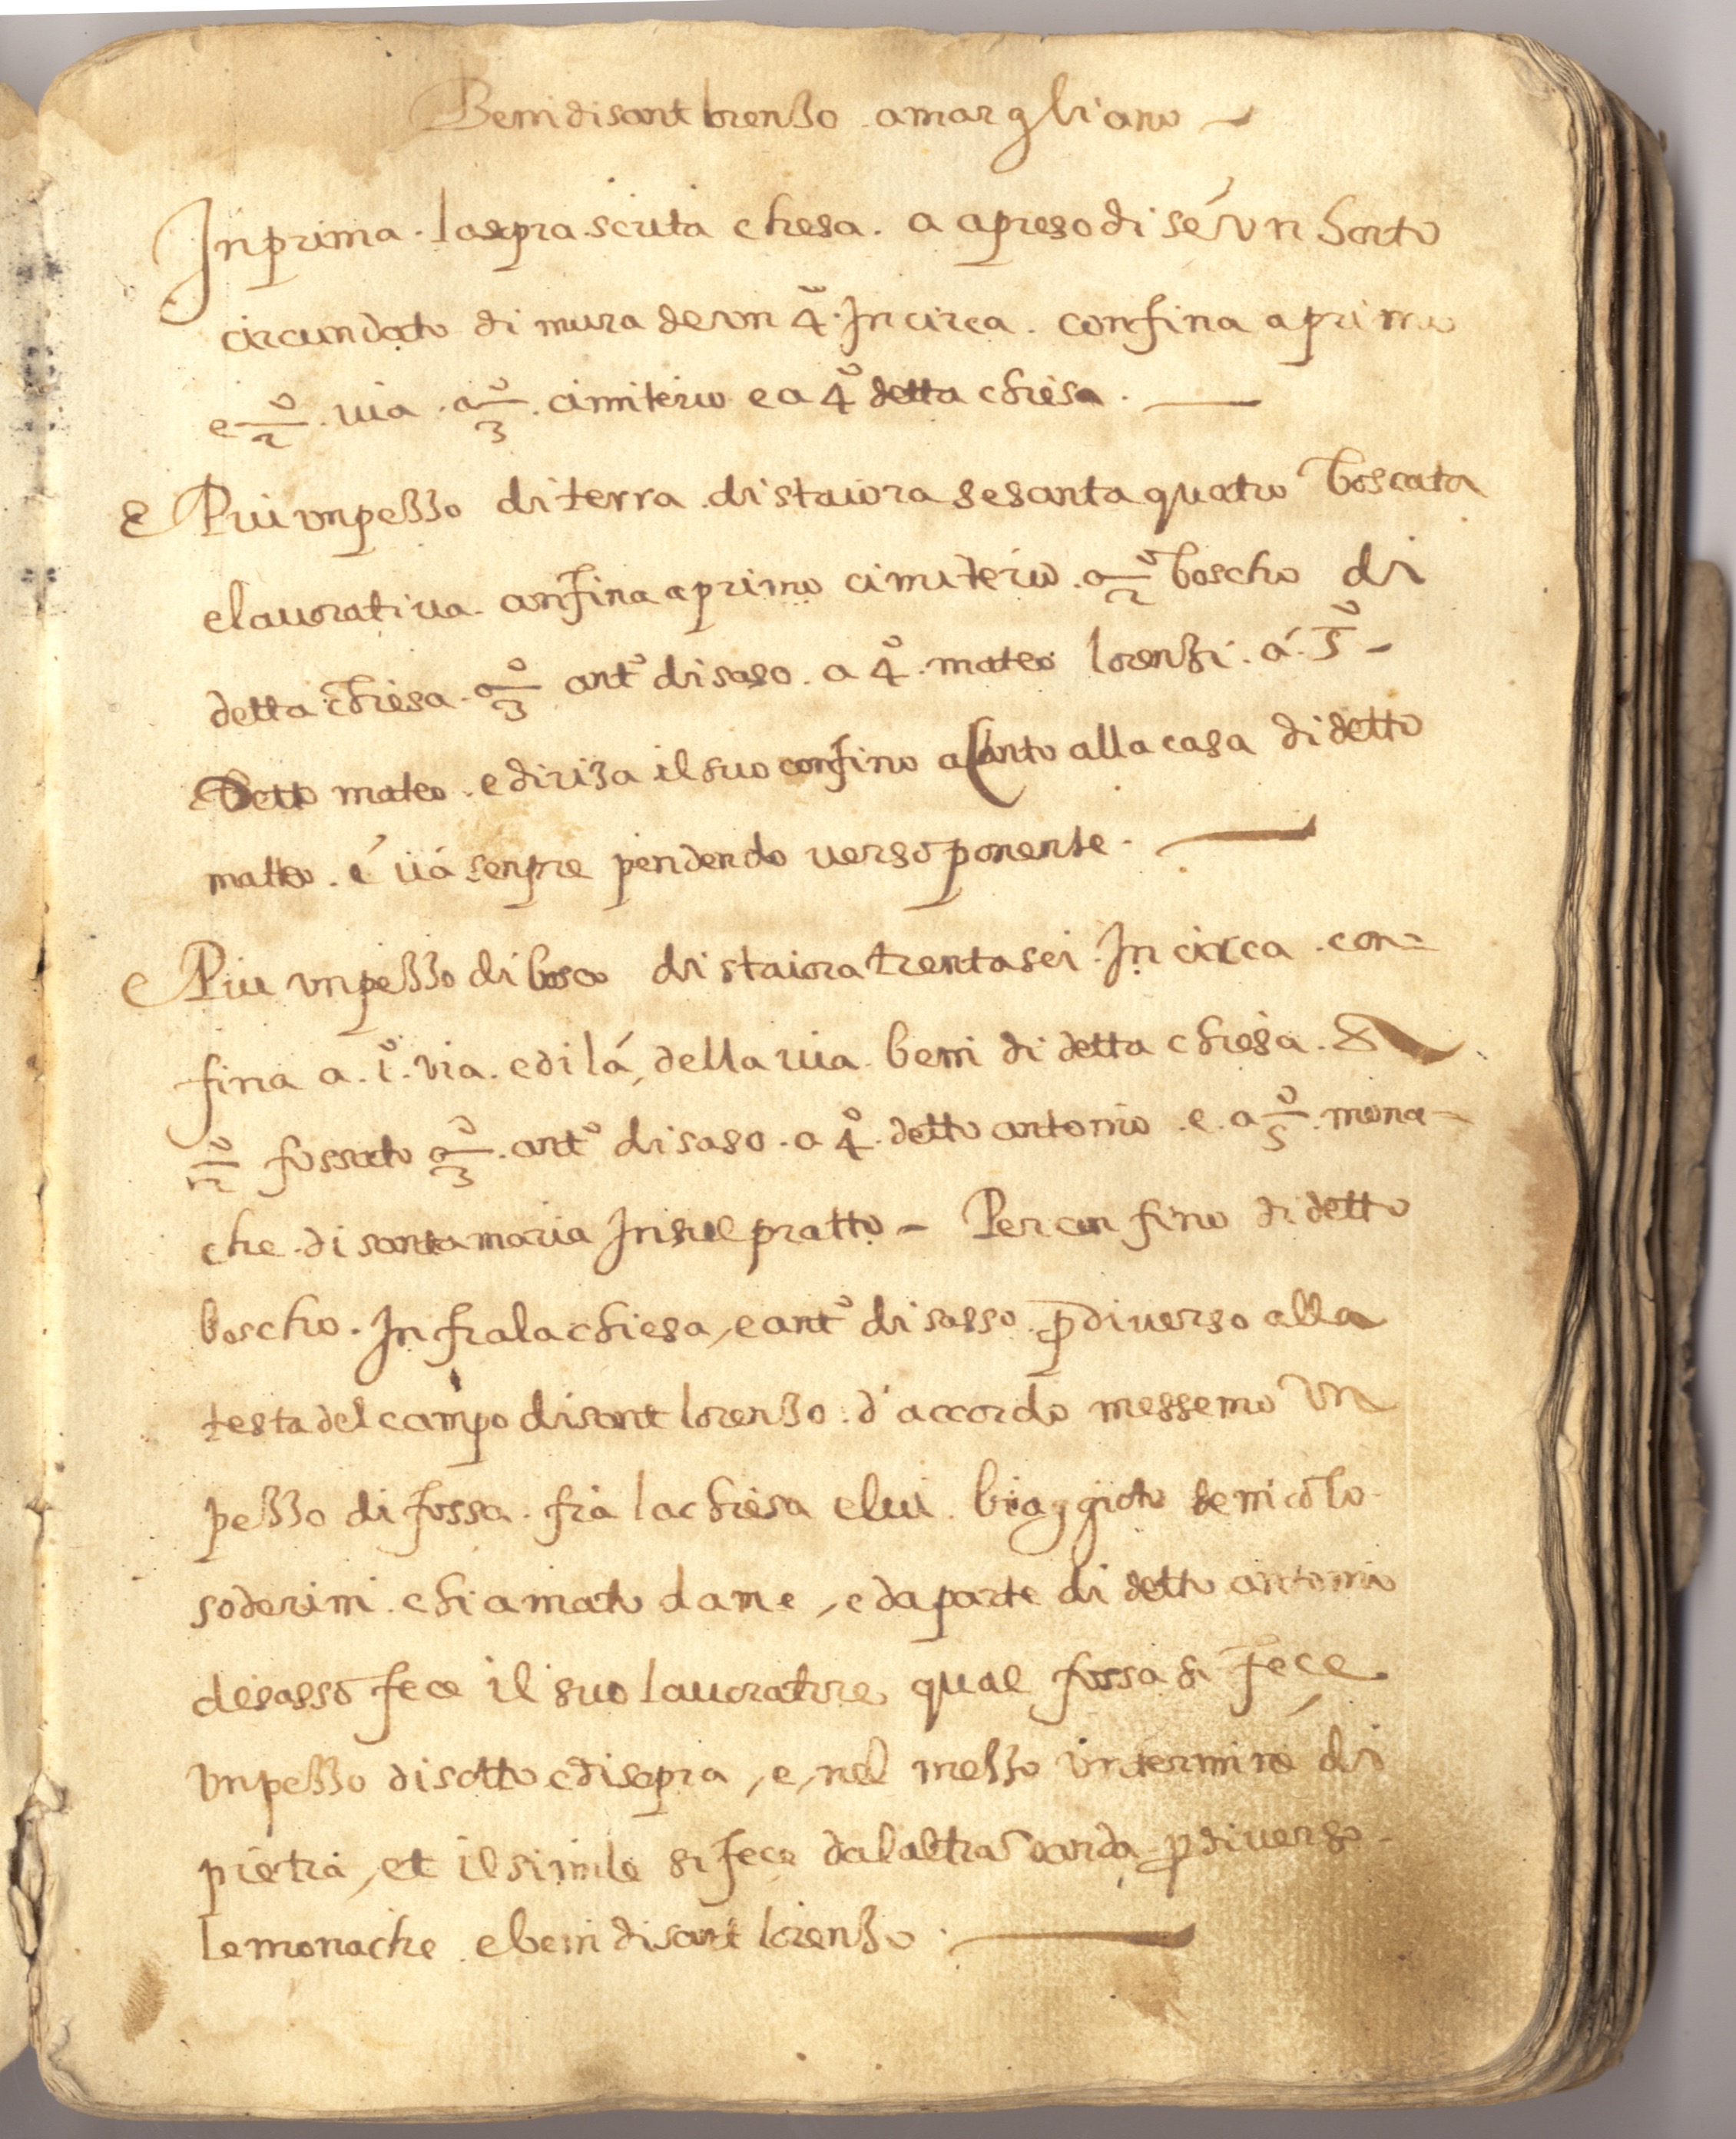 Beni di sant lorenzo a margliano
In prima la sopra scrita chiesa. a apreso di sé un horto
circundato di mura de un 4º. In circa. confina a primo
e 2º. via. a 3º. cimiterio e a 4º detta chiesa.
E Piu un pezzo di terra di staiora sesanta quatro boscata
e lavorativa. confina a primo cimiterio. a 2º boscho di
detta chiesa. a 3º antº di saso. a 4º. mateo lorenzi. á. 5º
Detto mateo. e diriza il suo confino a canto alla casa di detto
matteo. é vá senpre pendendo verso ponente.
E Piu un pezzo di bosco di staiora trentasei. In circa. con=
fina a. iº. via. e di lá, della via. beni di detta chiesa. &
2º fossato a 3º. antº di saso. a 4º. detto antonio. e. a 5º. mona=
che. di santa maria In sul pratto. Per confino di detto
boscho. In fra la chiesa, e antº di sasso. p diverso alla
testa del campo di sant lorenzo. d'accordo messemo un
pezzo di fossa. fra la chiesa e lui. biaggioto de nicolo
soderini. chiamato da me, e da parte di detto antonio
disasso fece il suo lavoratore, qual fossa si fece
un pezzo di sotto e di sopra, e, nel mezzo un termine di
pietra, et il simile si fece dal altra banda p diverso
le monache e beni di sant lorenzo.